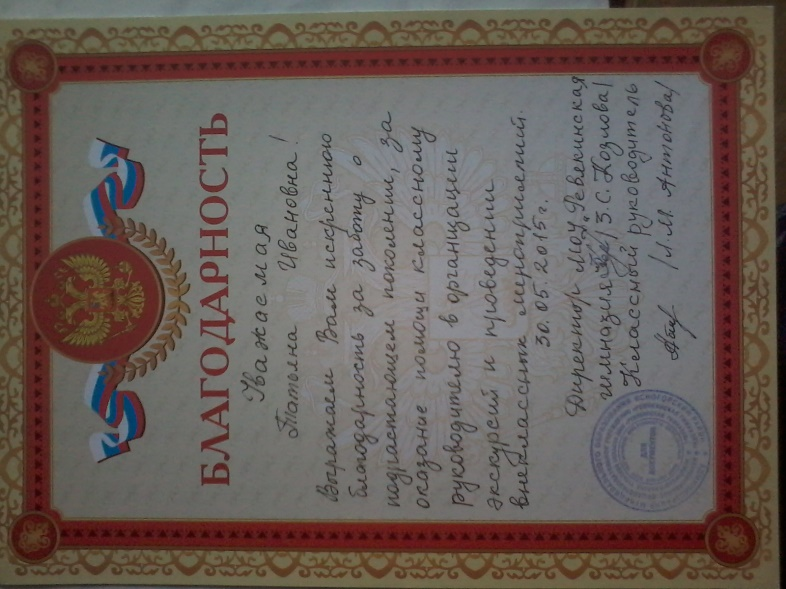 БЛАГОДАРНОСТЬ
Уважаемая
Татьяна Ивановна!
Выражаем Вам искреннюю
благодарность за заботу о
подрастающем поколении, за
оказание помощи классному
руководителю в организации
экскурсий и проведении
внеклассных мероприятий.
30.05.2015г.
Директор МОУ "Ревякинская
гимназия" /З.С. Козлова/
Классный руководитель
/Л.М. Антонова/
ДЛЯ
ДОКУМЕНТОВ